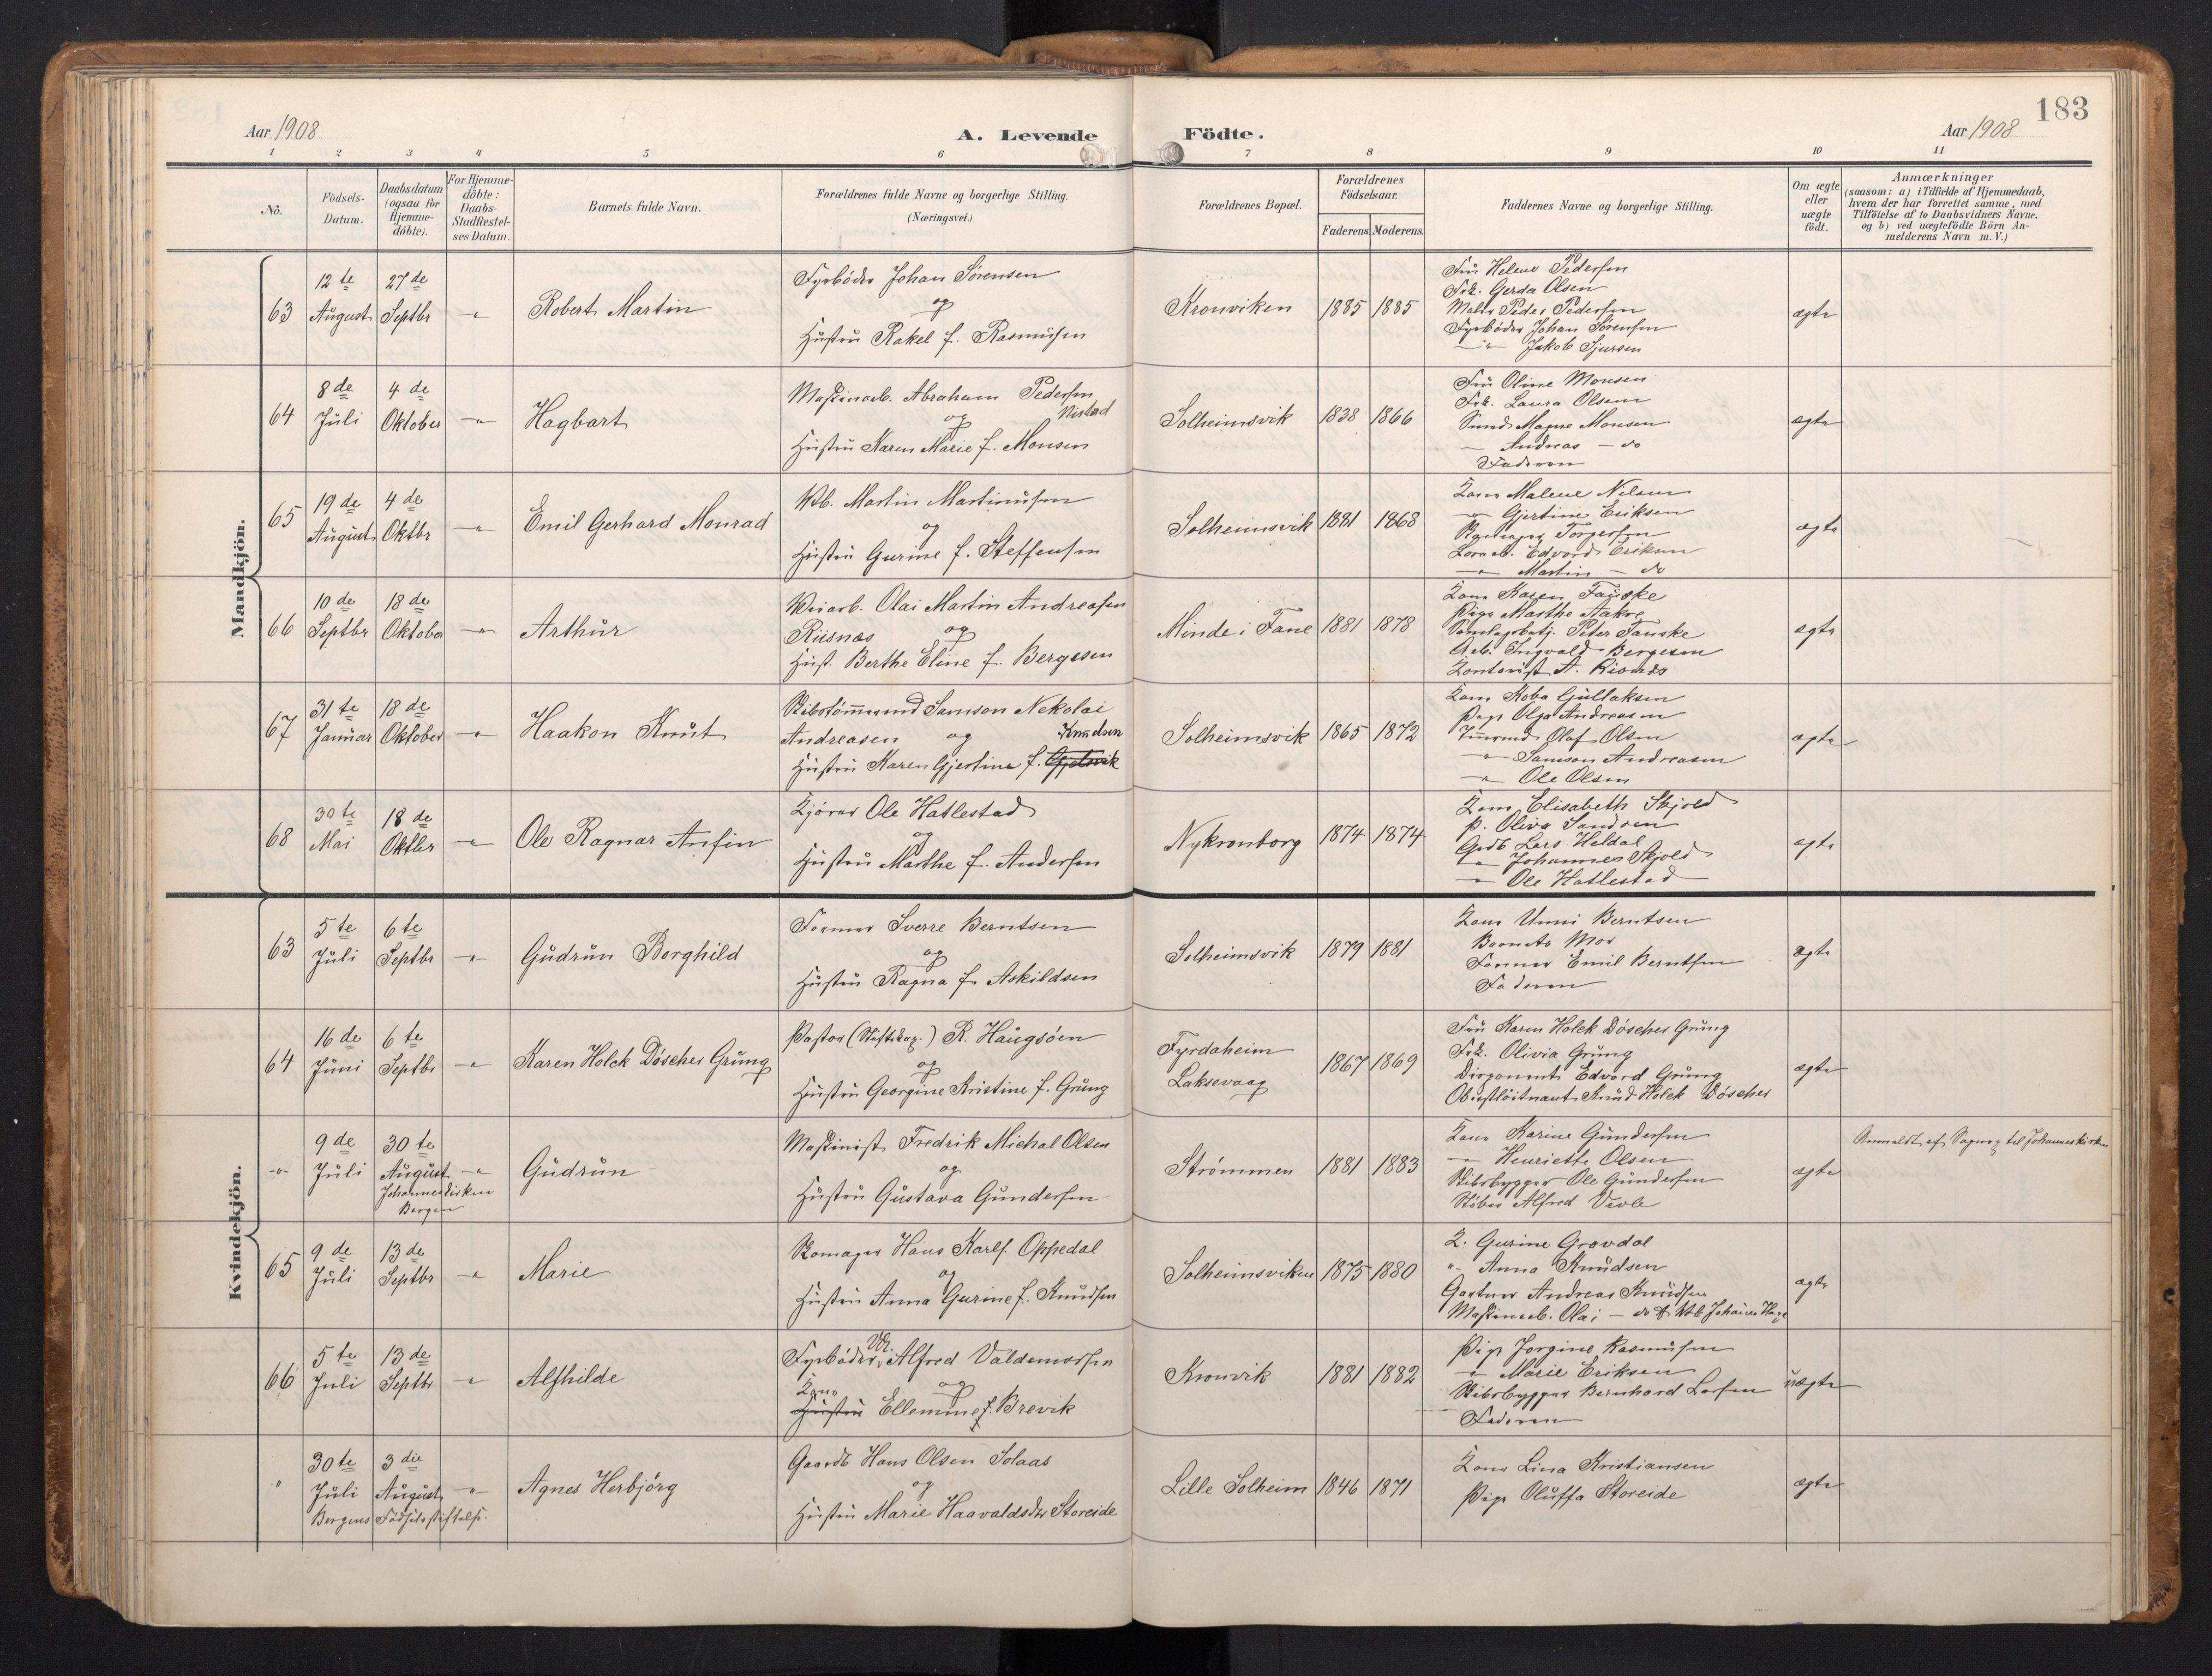 183
Aar 1908
A. Levende Födte.
Aar 1908
1 2 3 4 5 6 7 8 9 10 11
Nô.
Födsels-
Datum.
Daabsdatum
(ogsaa for
Hjemme-
döbte).
For Hjemme-
döbte:
Daabs-
Stadfæstel-
ses Datum.
Barnets fulde Navn.
Forældrenes fulde Navne og borgerlige Stilling.
(Næringsvei.)
Forældrenes Bopæl.
Forældrenes
Födselsaar.
Faderens. Moderens.
Faddernes Navne og borgerlige Stilling.
Om ægte
eller
uægte
födt.
Anmærkninger
(saasom: a) i Tilfælde af Hjemmedaab,
hvem der har forrettet samme, med
Tilföielse af to Daabsvidners Navne.
og b) ved uægtefödte Börn An-
melderens Navn m. V.)
Mandkjön.
63
12te August
27de Septbr
Robert Martin
Fyrbøder Johan Sörensen
og
Hustru Rakel f. Rasmussen
Kronviken
1885 1885
Fru Helene Pedersen
Frk. Gerda Olsen
Maler Peder Pedersen
Fyrbøder Johan Sörensen
-"- Jakob Sjursen
ægte
64
8de Juli
4de Oktober
Hagbart
Maskinarb. Abraham Pedersen
og Nistad
Hustru Karen Marie f. Monsen
Solheimsvik
1838 1866
Fru Oline Monsen
Frk. Laura Olsen
Magne Monsen
- Andreas - do
Faderen
ægte
65
19de August
4de Oktbr
Emil Gerhard Monrad
Martin Martinussen
og
Hustru Gurine f. Steffensen
Solheimsvik
1881 1868
Kone Malene Nilsen
-"- Gjertine Eriksen
Torgersen
Edvard Eriksen
-"- Martin - do
ægte
66
10de Septbr
18de Oktober
Arthur
Veiarb. Olai Martin Andreasen
Risnæs og
Hust. Berthe Eline f. Bergesen
Minde i Fane
1881 1878
Kone Karen Fauske
Pige Marthe Aakre
Peter Fauske
Arb. Ingvald Bergesen
Kontorist A. Risnæs
ægte
67
31te Januar
18de Oktober
Haakon Knut
Skibstömmermd Samson Nekolai
Andreasen og Knudsen
Hustru Karen Gjertine f. Gjelsvik
Solheimsvik
1865 1872
Kone Gullaksen
Pige Olga Andreasen
Tmmermd. Olaf Olsen
-"- Samson Andreasen
-"- Ole Olsen
ægte
68
30te Mai
18de Oktbr
Ole Ragnar Anfin
Kjörer Ole Hatlestad
og
Hustru Marthe f. Andersen
Nykronborg
1874 1874
Kone Elisabeth Skjold
P. Oliva Sandsen
Grdb Lars Heldal
-"- Johannes Skjold
-"- Ole Hatlestad
ægte
Kvindekjön.
63
5te Juli
6te Septbr
Gudrun Borghild
Former Sverre Berntsen
og
Hustru Ragna f. Askildsen
Solheimsvik
1879 1881
Kone Unni Berntsen
Barnets Mor
Former Emil Berntsen
Faderen
Ægte
64
16de Juni
6te Septbr
Karen Holck Döscher Grung
Pastor (Stiftskap.) R. Haugsöen
og
Hustru Georgine Kristine f. Grung
Fyrdaheim
Laksevaag
1867 1869
Fru Karen Holck Döscher Grung
Frk. Olivia Grung
Disponent Edvard Grung
Oberstlöitnant Knud Holck Döscher
ægte
-"-
9de Juli
30te August
Johanneskirken
Bergen
Gudrun
Maskinist Fredrik Michal Olsen
og
Hustru Gustava Gundersen
Strömmen
1881 1883
Kone Karine Gundersen
-"- Henriette Olsen
Skibsbygger Ole Gundersen
Støber Alfred Vevle
ægte
Anmeldt af Sognepr. til Johanneskirken
65
9de Juli
13de Septbr
Marie
Skomager Hans Karls. Oppedal
og
Hustru Anna Gurine f. Knudsen
Solheimsviken
1875 1880
K. Gurine Grovdal
"- Anna Knudsen
Gartner Andreas Knudsen
Maskinarb. Olai - do
ægte
66
5te Juli
13de Septbr
Alfhilde
Fyrbøder Alfred Valdemarsen
Kone og
Hustru Ellemine f. Brevik
Kronvik
1881 1882
Pige Jorgine Rasmussen
-"- Marie Eriksen
Skibsbygger Bernhard Larsen
Faderen
uægte
"
30te Juli
3die August
Bergens Födselsstiftelse.
Agnes Herbjörg
Gaardb Hans Olsen Solaas
og
Hustru Marie Haavaldsdtr Storeide
Lille Solheim
1846 1871
Kone Lina Kristiansen
Pige Oluffa Storeide
ægte